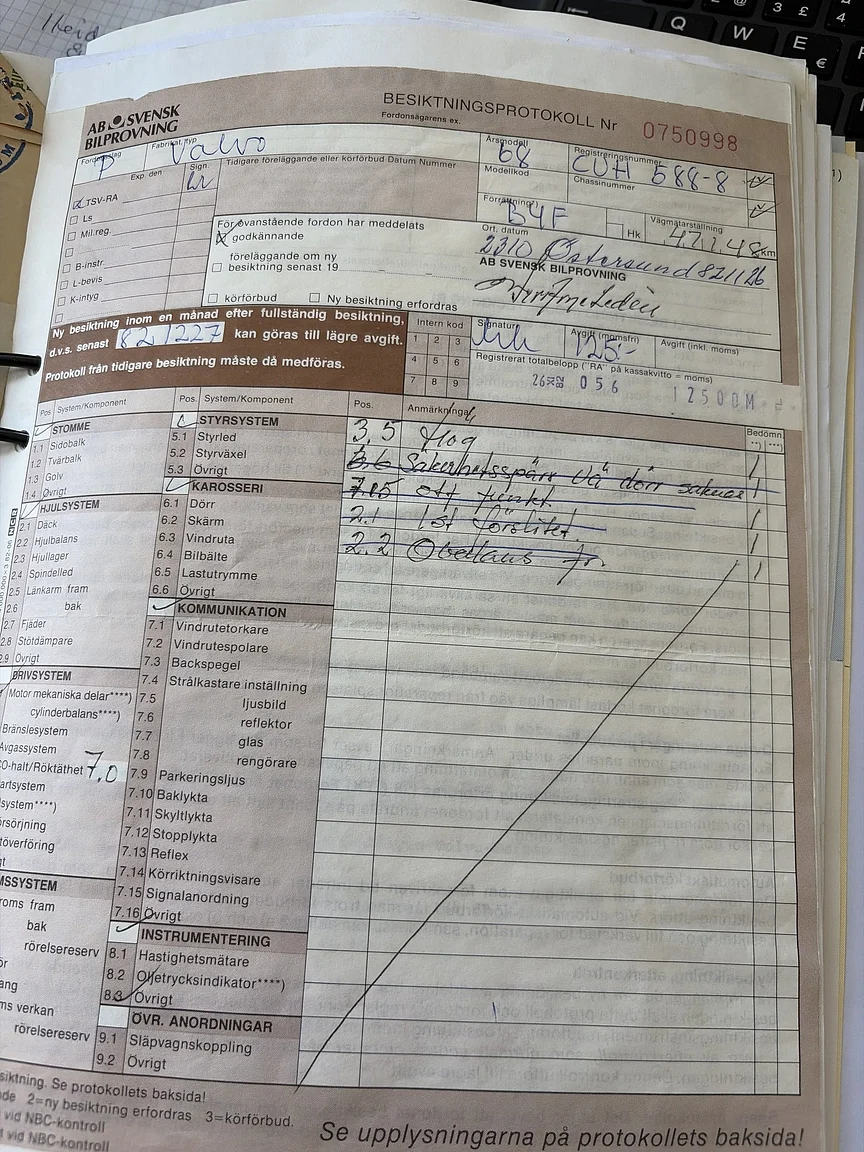 BESIKTNINGSPROTOKOLL Nr 0750998
Fordonsägarens ex.
AB SVENSK
BILPROVNING
Fordonsslag
P
Fabrikat, typ
Volvo
Årsmodell
68
Registreringsnummer
CUH 588-8
Exp. den
Sign.
Tidigare föreläggande eller körförbud Datum Nummer
Modellkod
Chassinummer
TSV-RA
Ls
Mil.reg.
B-instr.
L-bevis
K-intyg
Förrättning*)
B4F
Hk
Vägmätarställning
47.1.48 km
För ovanstående fordon har meddelats
godkännande
föreläggande om ny
besiktning senast 19
körförbud
Ny besiktning erfordras
Ort, datum
2310 Östersund 821126
AB SVENSK BILPROVNING
Ny besiktning inom en månad efter fullständig besiktning,
d.v.s. senast 821227 kan göras till lägre avgift.
Protokoll från tidigare besiktning måste då medföras.
Intern kod
1 2 3
4 5 6
7 8 9
Signatur
Avgift (momsfri)
125:-
Avgift (inkl. moms)
Registrerat totalbelopp ("RA" på kassakvitto = moms)
056
12500M
Pos System/Komponent
Pos. System/Komponent
Pos.
Anmärkningar
Bedömn.
**) ***)
STOMME
1.1 Sidobalk
1.2 Tvärbalk
1.3 Golv
1.4 Övrigt
HJULSYSTEM
2.1 Däck
2.2 Hjulbalans
2.3 Hjullager
2.4 Spindelled
2.5 Länkarm fram
2.6 bak
2.7 Fjäder
2.8 Stötdämpare
2.9 Övrigt
DRIVSYSTEM
Motor mekaniska delar****)
cylinderbalans****)
Bränslesystem
Avgassystem
CO-halt/Röktäthet 7,0
artsystem
system****)
rsörjning
töverföring
gt
MSSYSTEM
roms fram
bak
rörelsereserv
ör
ang
ms verkan
rörelsereserv
STYRSYSTEM
5.1 Styrled
5.2 Styrväxel
5.3 Övrigt
KAROSSERI
6.1 Dörr
6.2 Skärm
6.3 Vindruta
6.4 Bilbälte
6.5 Lastutrymme
6.6 Övrigt
KOMMUNIKATION
7.1 Vindrutetorkare
7.2 Vindrutespolare
7.3 Backspegel
7.4 Strålkastare inställning
7.5 ljusbild
7.6 reflektor
7.7 glas
7.8 rengörare
7.9 Parkeringsljus
7.10 Baklykta
7.11 Skyltlykta
7.12 Stopplykta
7.13 Reflex
7.14 Körriktningsvisare
7.15 Signalanordning
7.16 Övrigt
INSTRUMENTERING
8.1 Hastighetsmätare
8.2 Oljetrycksindikator****)
8.3 Övrigt
ÖVR. ANORDNINGAR
9.1 Släpvagnskoppling
9.2 Övrigt
3,5 Hög
6.6 Säkerhetsspärr Vä dörr saknas
7.15 ott funkt.
2.1 1st försliten.
2.2 Obalans fr.
siktning. Se protokollets baksida!
de 2=ny besiktning erfordras 3=körförbud.
vid NBC-kontroll
vid NBC-kontroll
Se upplysningarna på protokollets baksida!
Q
W
E
€
3
£
4